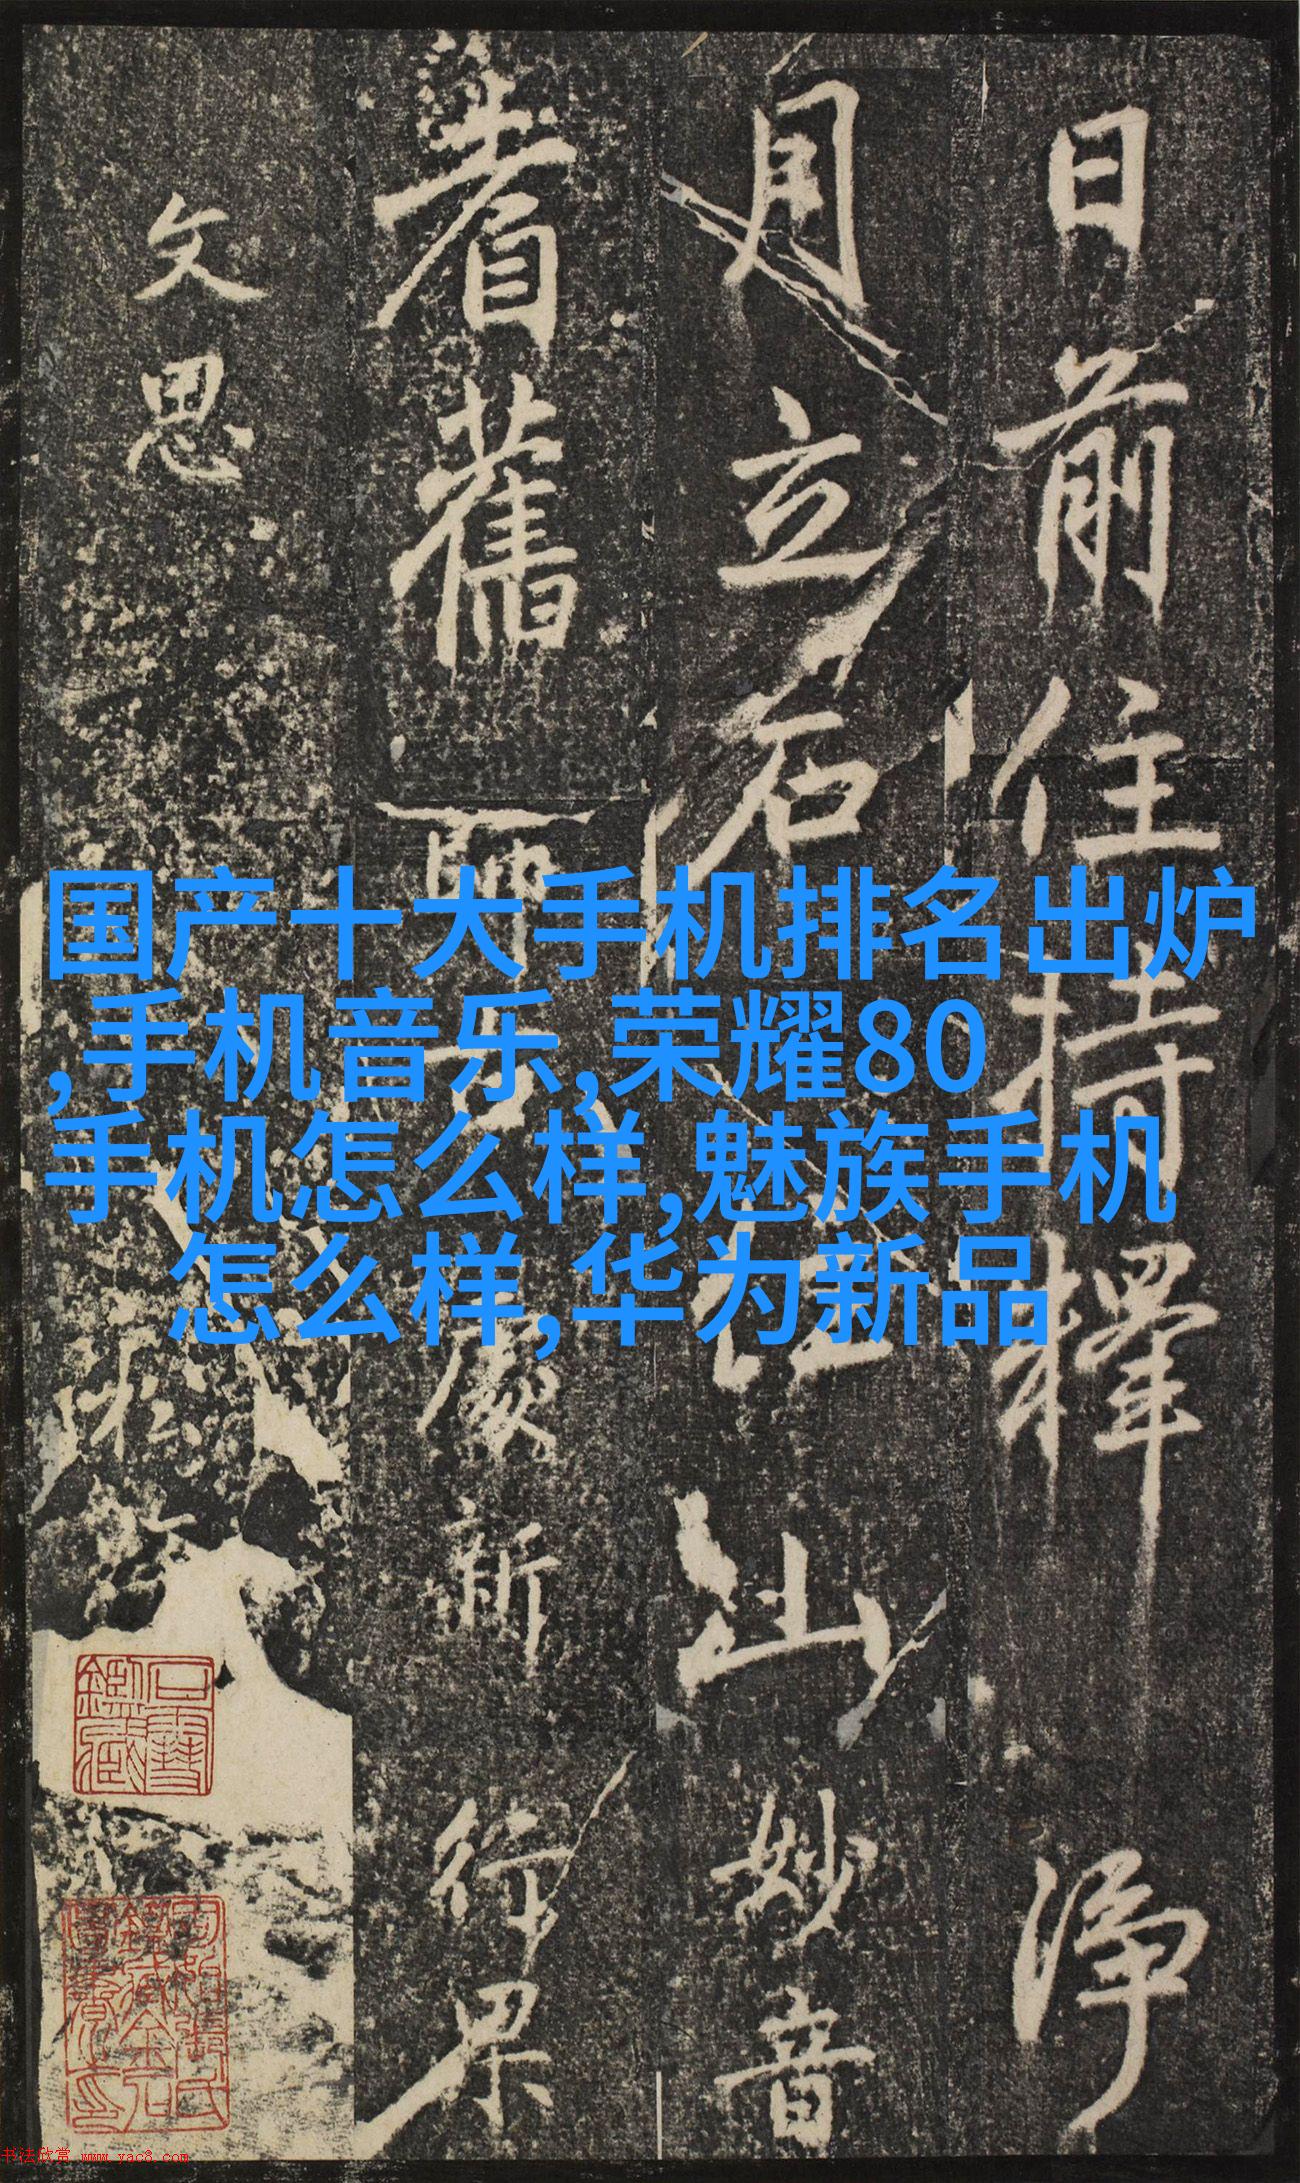 国产十大手机排名出炉
,手机音乐,荣耀80
手机怎么样,魅族手机
怎么样,华为新品
日前住持釋淨
月立石山妙音
耆舊師慶新行果
文思
书法欣赏 www.yac8.com